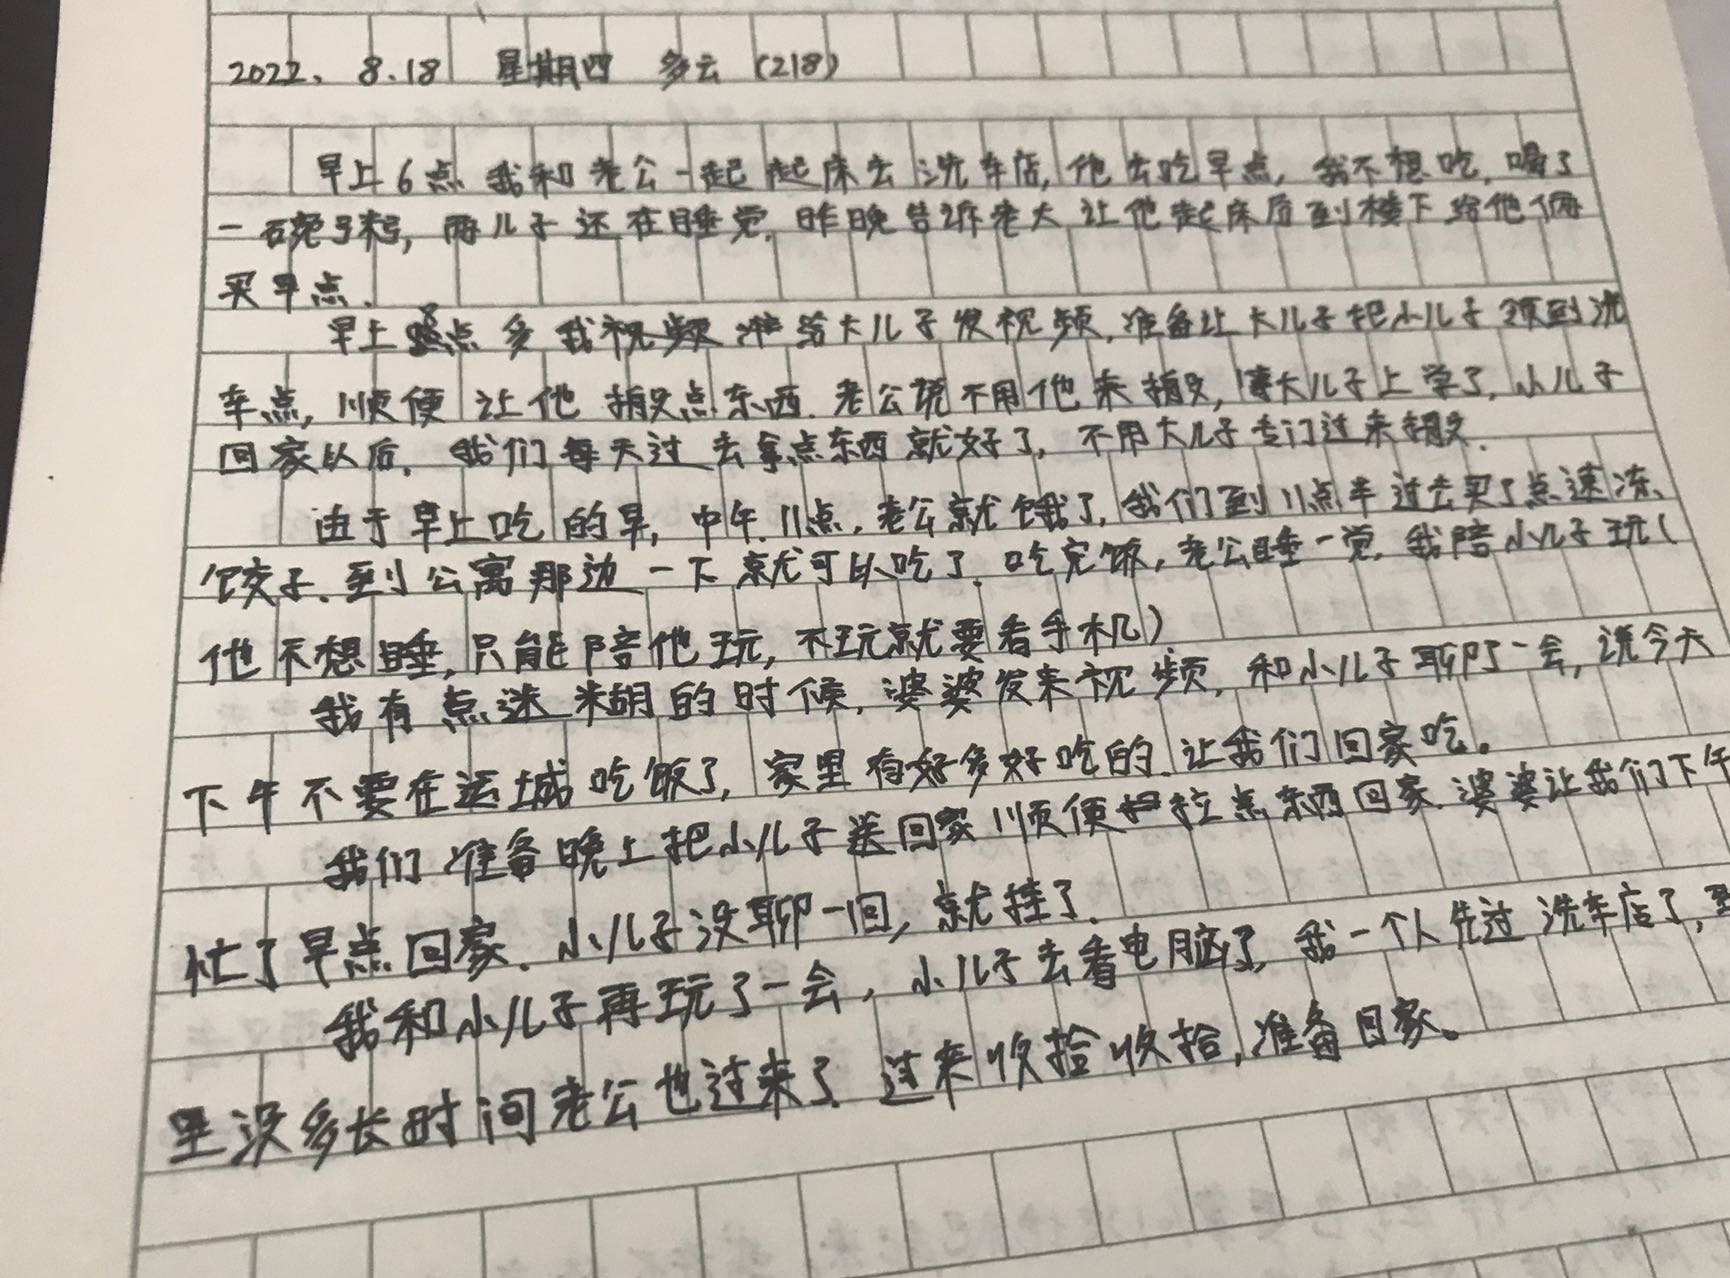 2022、8.18 星期四 多云 (218)
早上6点我和老公一起起床去洗车店,他去吃早点,我不想吃,喝了
一碗粥,两儿子还在睡觉,昨晚告诉老大让他起床后到楼下给他俩
买早点.
早上点多我视频准给大儿子发视频,准备让大儿子把小儿子领到洗
车点,顺便让他搬点东西.老公说不用他来搬,等大儿子上学了,小儿子
回家以后,我们每天过去拿点东西就好了,不用大儿子专门过来搬.
由于早上吃的早,中午11点,老公就饿了,我们到11点半过去买了点速冻
饺子.到公寓那边一下就可以吃了.吃完饭,老公睡一觉,我陪小儿子玩(
他不想睡,只能陪他玩,不玩就要看手机)
我有点迷糊的时候,婆婆发来视频,和小儿子聊了一会,说今天
下午不要在运城吃饭了,家里有好多好吃的.让我们回家吃。
我们准备晚上把小儿子送回家顺便拉点东西回家.婆婆让我们下午
忙了早点回家.小儿子没聊一回,就挂了.
我和小儿子再玩了一会,小儿子去看电脑了,我一个人先过洗车店了,到
里没多长时间老公也过来了.过来收拾收拾,准备回家。